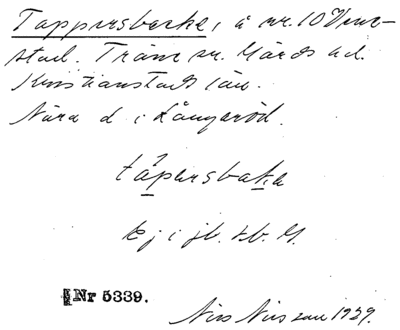 Tappersbacke, å nr. 10 Vun-
stad. Träne sn. Gärds hd.
Kristianstads län.
Nära d i Långaröd.
tápersbaka
Ej i jb. sb. G.
Nr 5339.
Nils Nilsson 1929.